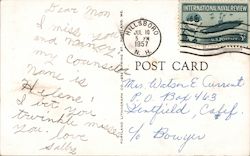 Dear Mom
I miss you
and nanny
my counselor
name is
Helene!
I bet you
twinkle miss
you. love
Sally
HILLSBORO
JUL 10
5 PM
1957
N. H.
INTERNATIONAL NAVAL REVIEW
POST CARD
Mrs Watson E Current
P.O Box 463
Kentfield, Calif.
c/o Bowyer